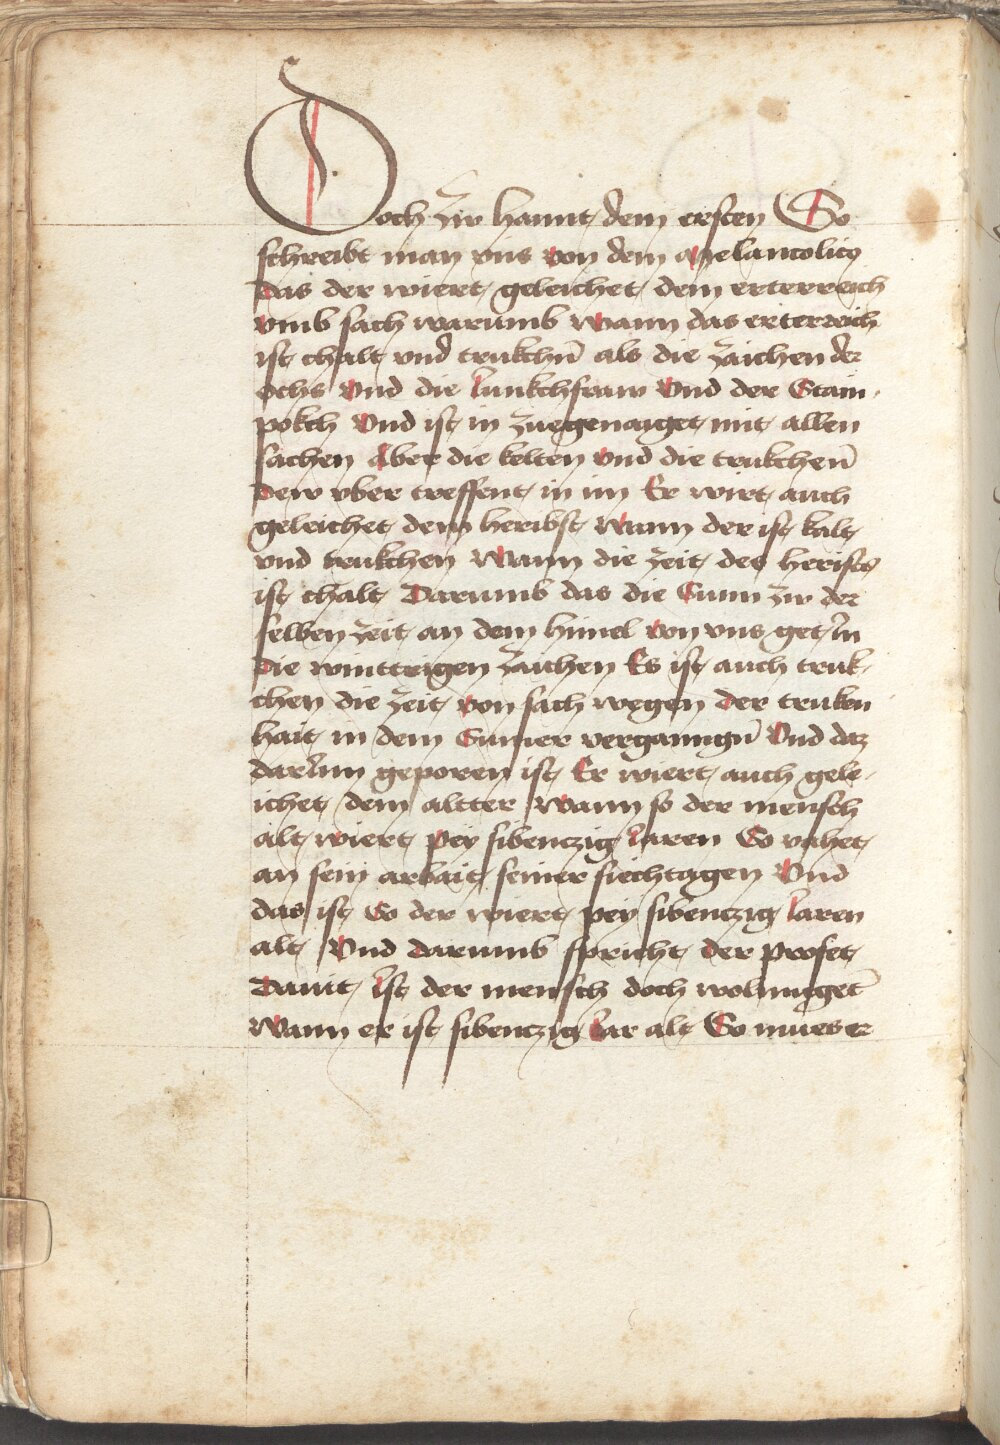 Doch zw hannt dem ersten So
schreibt man vns von dem Melancolico
Das der wiert geleichet dem erterreich
vmb sach warumb Wann das erterreich
ist chalt vnd trukchn̄ als die zaichen der
ochs Vnd die Iunkchfraw Vnd der Stain
pokch Vnd ist in zuegenaiget mit allen
sachen Aber die kelten vnd die trukchen̄
Dew vber treffent in im Er wirt auch
geleichet dem heribst Wann der ist kalt
vnd trukchen Wann die zeit des heribsts
ist chalt Darumb das die Sunn zw der
selben zeit an dem himel von vns get In
Die winttrigen zaichen Es ist auch truk
chen die zeit von sach wegen der truken
hait in dem Sumer vergangn̄ Vnd daz
darInn geporen ist Er wiert auch gele
ichet dem altter Wann so der mensch
alt wiert pey sibenczig Iaren So vahet
an sein arbait seiner siechtagen Vnd
das ist So der wiert pey sibenczig Iaren
alt Vnd Darumb spricht der profet
Dauit Ist der mensch doch wolmuget̄
Wann er ist sibenczig Iar alt So mues er